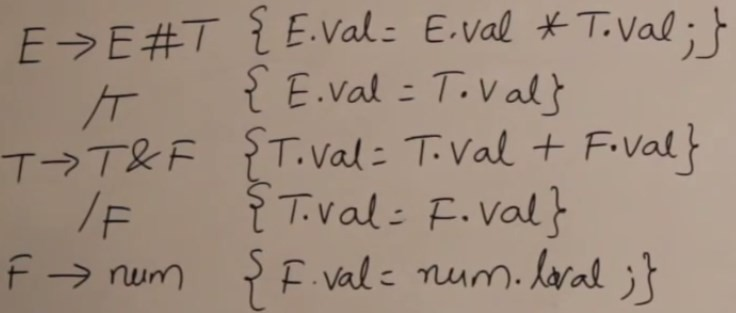 E → E # T { E.val = E.val * T.val ; }
/T { E.val = T.val }
T → T & F { T.val = T.val + F.val }
/F { T.val = F.val }
F → num { F.val = num.lval ; }